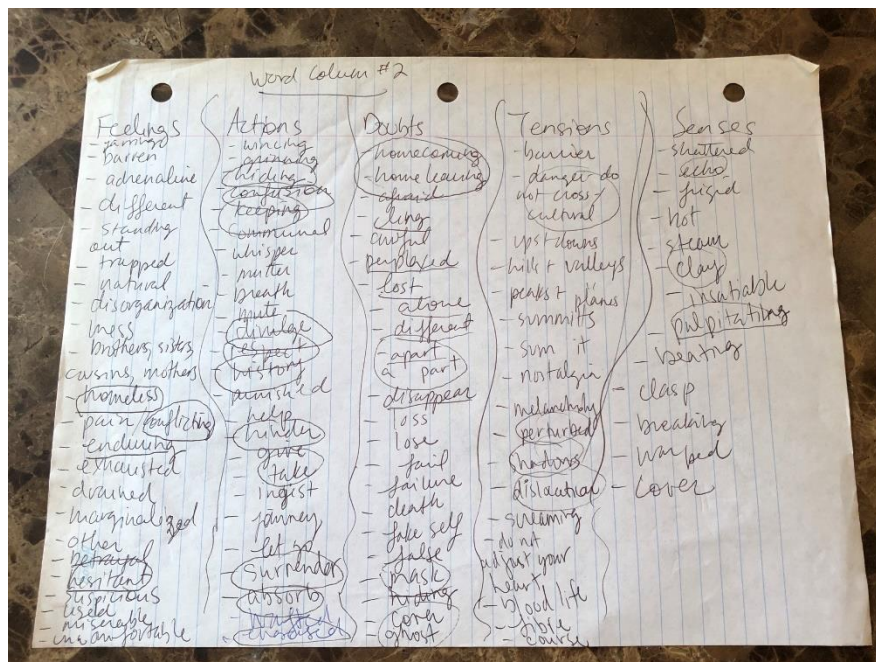 Word Column #2
Feelings
- barren
- adrenaline
- different
- standing
out
- trapped
- natural
- disorganization
- mess
- brothers, sisters,
cousins, mothers
- homeless
- pain / conflicting
- enduring
- exhausted
- drained
- marginalized
- other
- betrayal
- hesitant
- suspicious
- used
- miserable
- uncomfortable
Actions
- wincing
- grinning
- hiding
- confusion
- keeping
- communal
- whisper
- mutter
- breath
- mute
- divulge
- respect
- history
- punished
- help
- hinder
- give
- take
- ingist
- journey
- let go
- surrender
- absorb
Doubts
- homecoming
- home leaving
- afraid
- cling
- awful
- perplexed
- lost
- alone
- different
- apart
a part
- disappear
- loss
- lose
- fail
- failure
- death
- fake self
- false
- mask
- hiding
- cover
- ghost
Tensions
- barrier
- danger do
not cross/
cultural
- ups + downs
- hills + valleys
- peaks + planes
- summitts
- sum it
- nostalgia
- melancholy
- perturbed
- shadows
- dislocation
- screaming
- do not
adjust your
heart
- blood life
- fibre
- course
Senses
- shattered
- echo
- frigid
- hot
- steam
- clay
- insatiable
- pulpitating
- beating
- clasp
- breaking
- warped
- cover